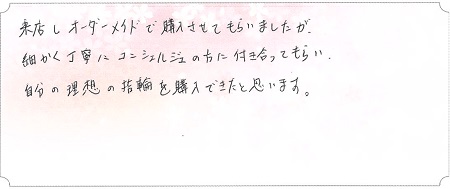 来店しオーダーメイドで購入させてもらいましたが、
細かく丁寧にコンシェルジュの方に付き合ってもらい、
自分の理想の指輪を購入できたと思います。